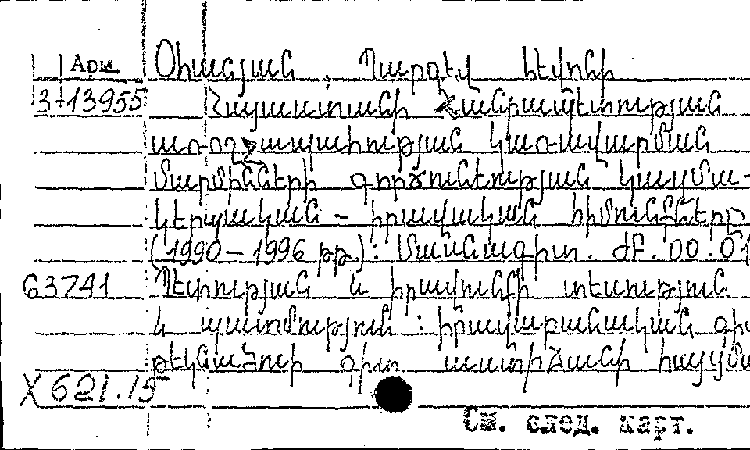 Арм Օհանյան Պարգև Լևոնի
3-13955 Հայաստանի Հանրապետության
առողջապահության կառավարման
մարմինների գործունեության կազմա-
կերպական - իրավական հիմունքները
(1990-1996 թթ.): Մասնագիտ. ԺԲ. 00. 01
63741 Պետության և իրավունքի տեսություն
և պատմություն: Իրավաբանական գի
թեկնածուի գիտ աստիճանի հայցմա
X 621.15
См. след. карт.